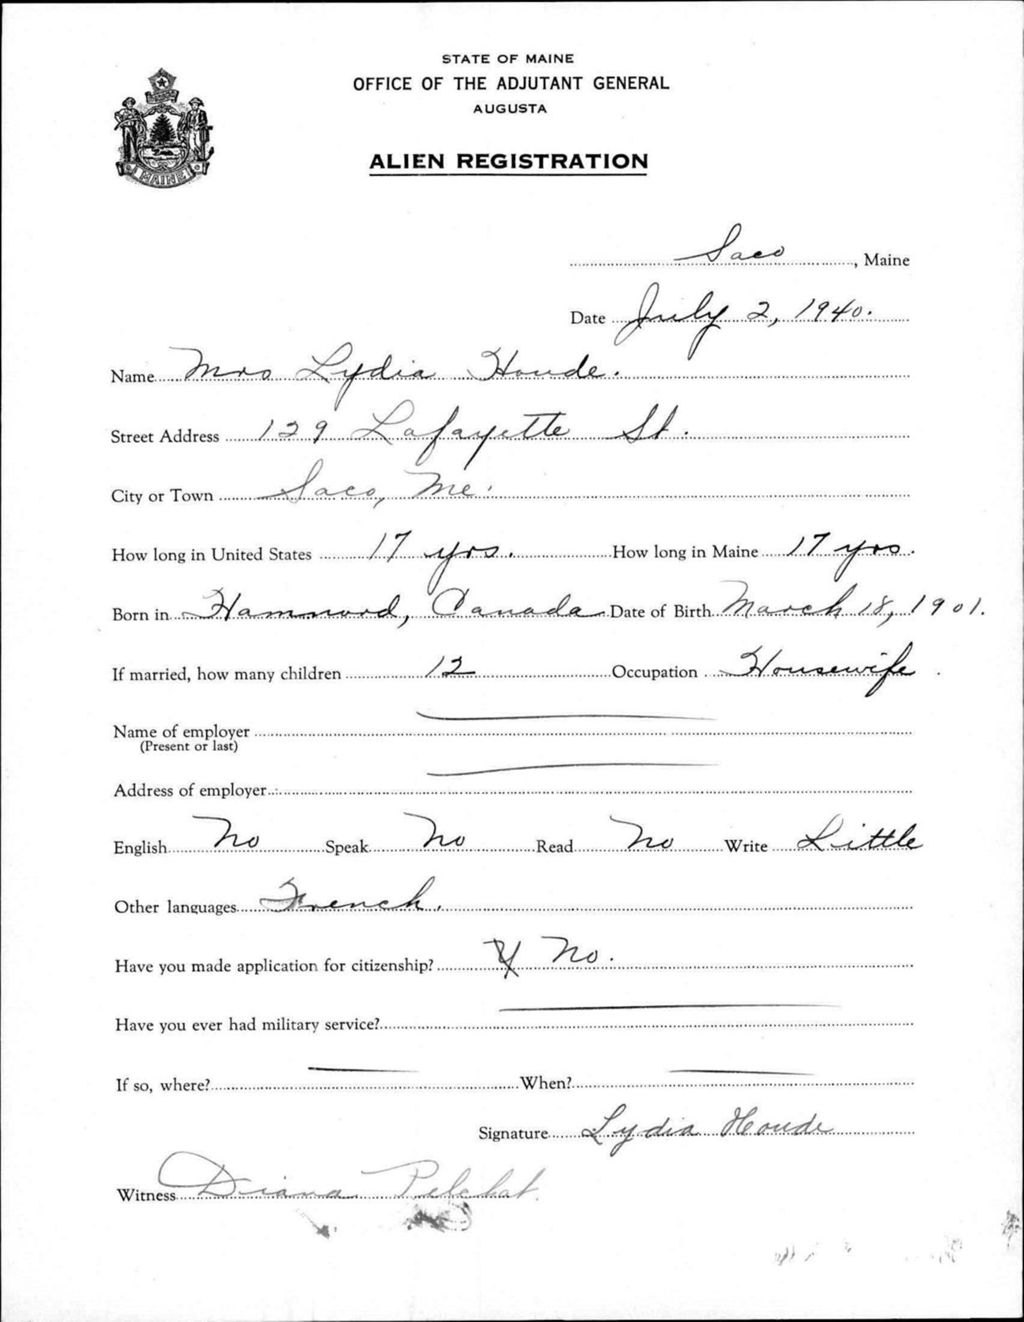 STATE OF MAINE
OFFICE OF THE ADJUTANT GENERAL
AUGUSTA
ALIEN REGISTRATION
MAINE
Saco, Maine
Date July 2, 1940.
Name Mrs Lydia Houde.
Street Address 129 Lafayette St.
City or Town Saco, Me.
How long in United States 17 yrs. How long in Maine 17 yrs.
Born in Hamnord, Canada Date of Birth March 18, 1901.
If married, how many children 12 Occupation Housewife.
Name of employer
(Present or last)
Address of employer
English No Speak No Read No Write Little
Other languages French.
Have you made application for citizenship? No.
Have you ever had military service?
If so, where? When?
Signature Lydia Houde
Witness Diana Pelchat.